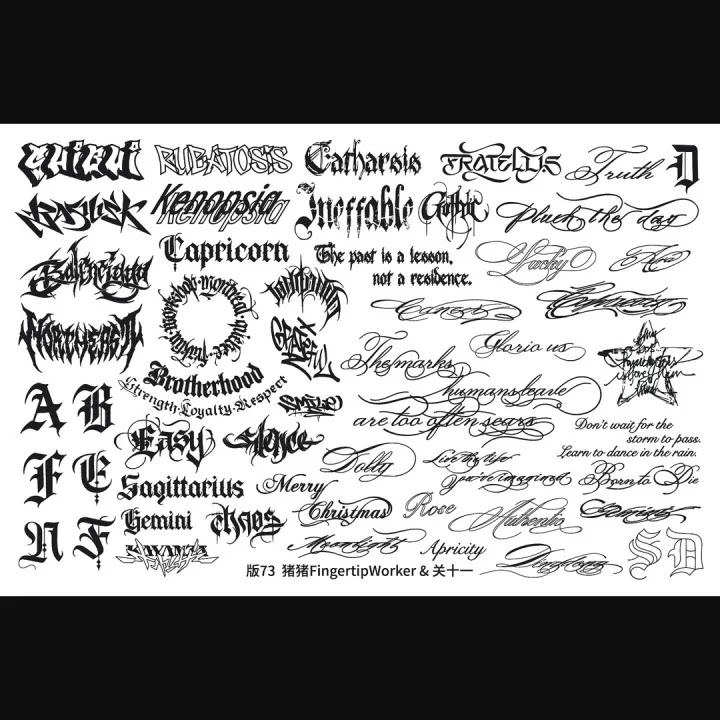 RUBATOSIS
Catharsis
FRATELLIS
Truth
D
Kenopsia
Kenopsia
Ineffable
Gothic
pluck the day
Capricorn
The past is a lesson,
not a residence.
Lucky
Cancer
NORTHERN
Glorious
The marks
humans leave
are too often scars
Brotherhood
Strength·Loyalty·Respect
SMILE
A
B
Easy
silence
Don't wait for the
storm to pass.
Learn to dance in the rain.
Dolly
Live the life
you've imagined
Born to Die
F
E
Sagittarius
Merry
Christmas
Rose
Authentic
Gemini
chaos
N
F
Moonlight
Apricity
S
D
版73 猪猪FingertipWorker & 关十一